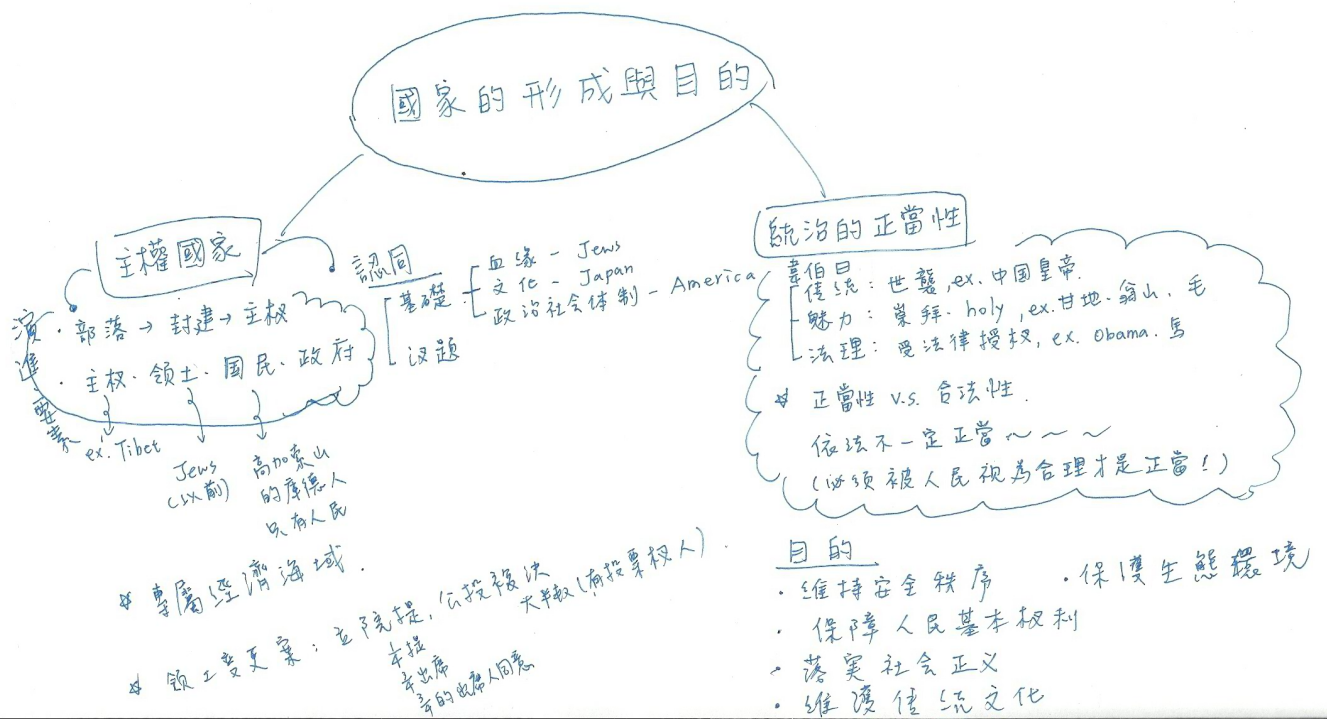 國家的形成與目的
主權國家
演進
・部落→封建→主权
要素
・主权・领土・国民・政府
ex. Tibet
Jews
(以前)
高加索山
的庫德人
只有人民
認同
基礎
血缘 - Jews
文化 - Japan
政治社会体制 - America
议題
* 專屬經濟海域.
* 领土变更案：立院提，公投複决
大半数(有投票权人).
提
出席
的出席人同意
統治的正當性
韋伯曰
传統：世襲, ex.中国皇帝.
魅力：崇拜・holy, ex.甘地・翁山・毛
法理：受法律授权, ex. Obama.馬
☆ 正當性 v.s. 合法性.
依法不一定正當～～～
(必须被人民视為合理才是正當！)
目的
・維持安全秩序
・保護生態環境
・保障人民基本权利
・落実社会正义
・維護传統文化